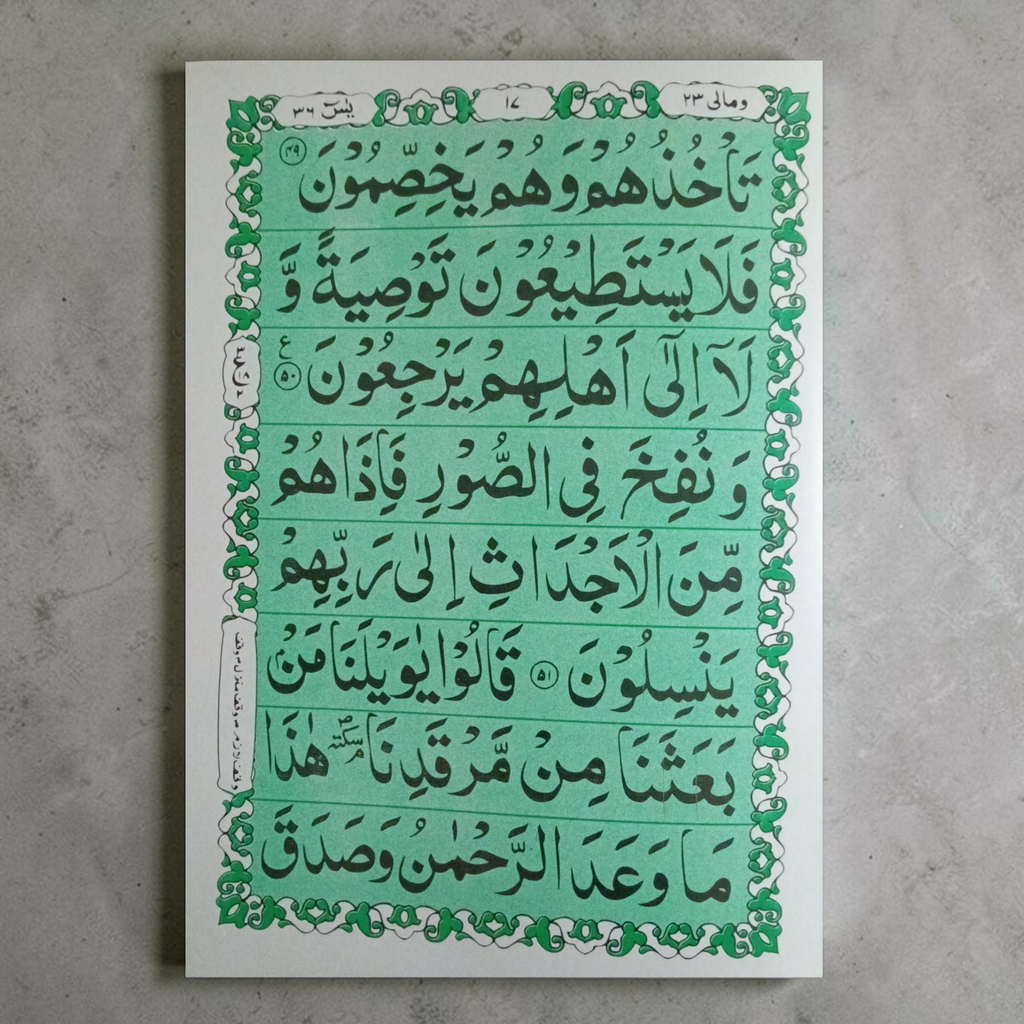 ومالی ۲۳
۱۷
یٰسٓ ۳۶
تَاْخُذُهُمْ وَهُمْ یَخِصِّمُوْنَ ﴿۴۹﴾
فَلَا یَسْتَطِیْعُوْنَ تَوْصِیَةً وَّ
لَاۤ اِلٰۤی اَهْلِهِمْ یَرْجِعُوْنَ ﴿۵۰﴾ ع
وَ نُفِخَ فِی الصُّوْرِ فَاِذَا هُمْ
مِّنَ الْاَجْدَاثِ اِلٰی رَبِّهِمْ
یَنْسِلُوْنَ ﴿۵۱﴾ قَالُوْا یٰوَیْلَنَا مَنْۢ
بَعَثَنَا مِنْ مَّرْقَدِنَا سكتة هٰذَا
مَا وَعَدَ الرَّحْمٰنُ وَصَدَقَ